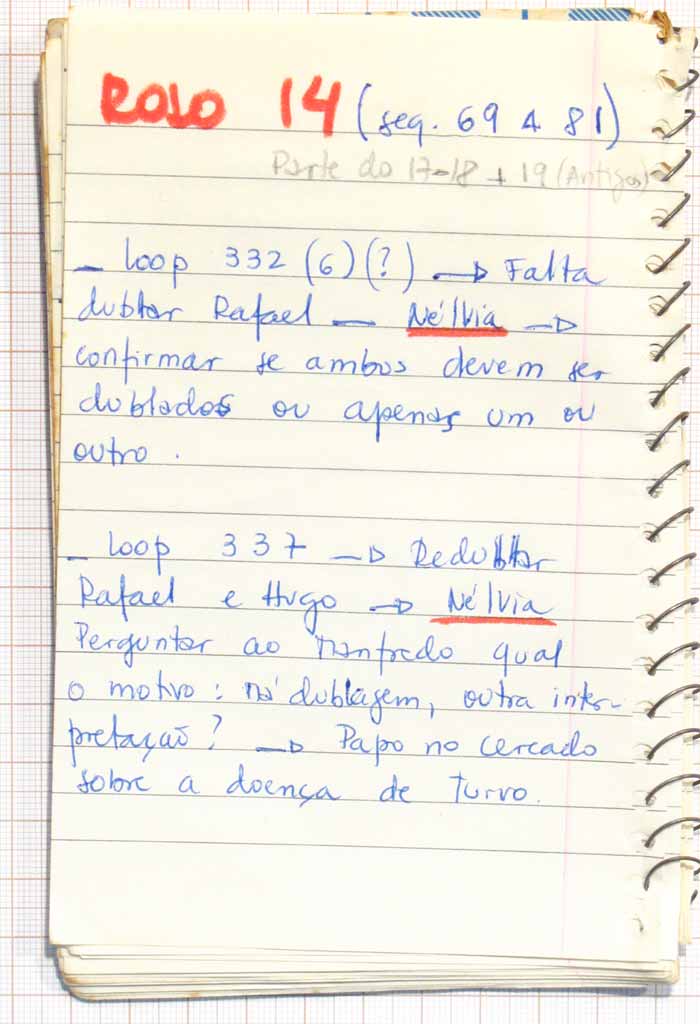 ROLO 14 (seq. 69 A 81)
Parte do 17-18 + 19 (Antigos)
- loop 332 (6) (?) → Falta
dublar Rafael — Nélvia →
confirmar se ambos devem ser
dublados ou apenas um ou
outro.
- loop 337 → Redublar
Rafael e Hugo → Nélvia
Perguntar ao Manfredo qual
o motivo: má dublagem, outra inter-
pretação? → Papo no cercado
sobre a doença de Turvo.